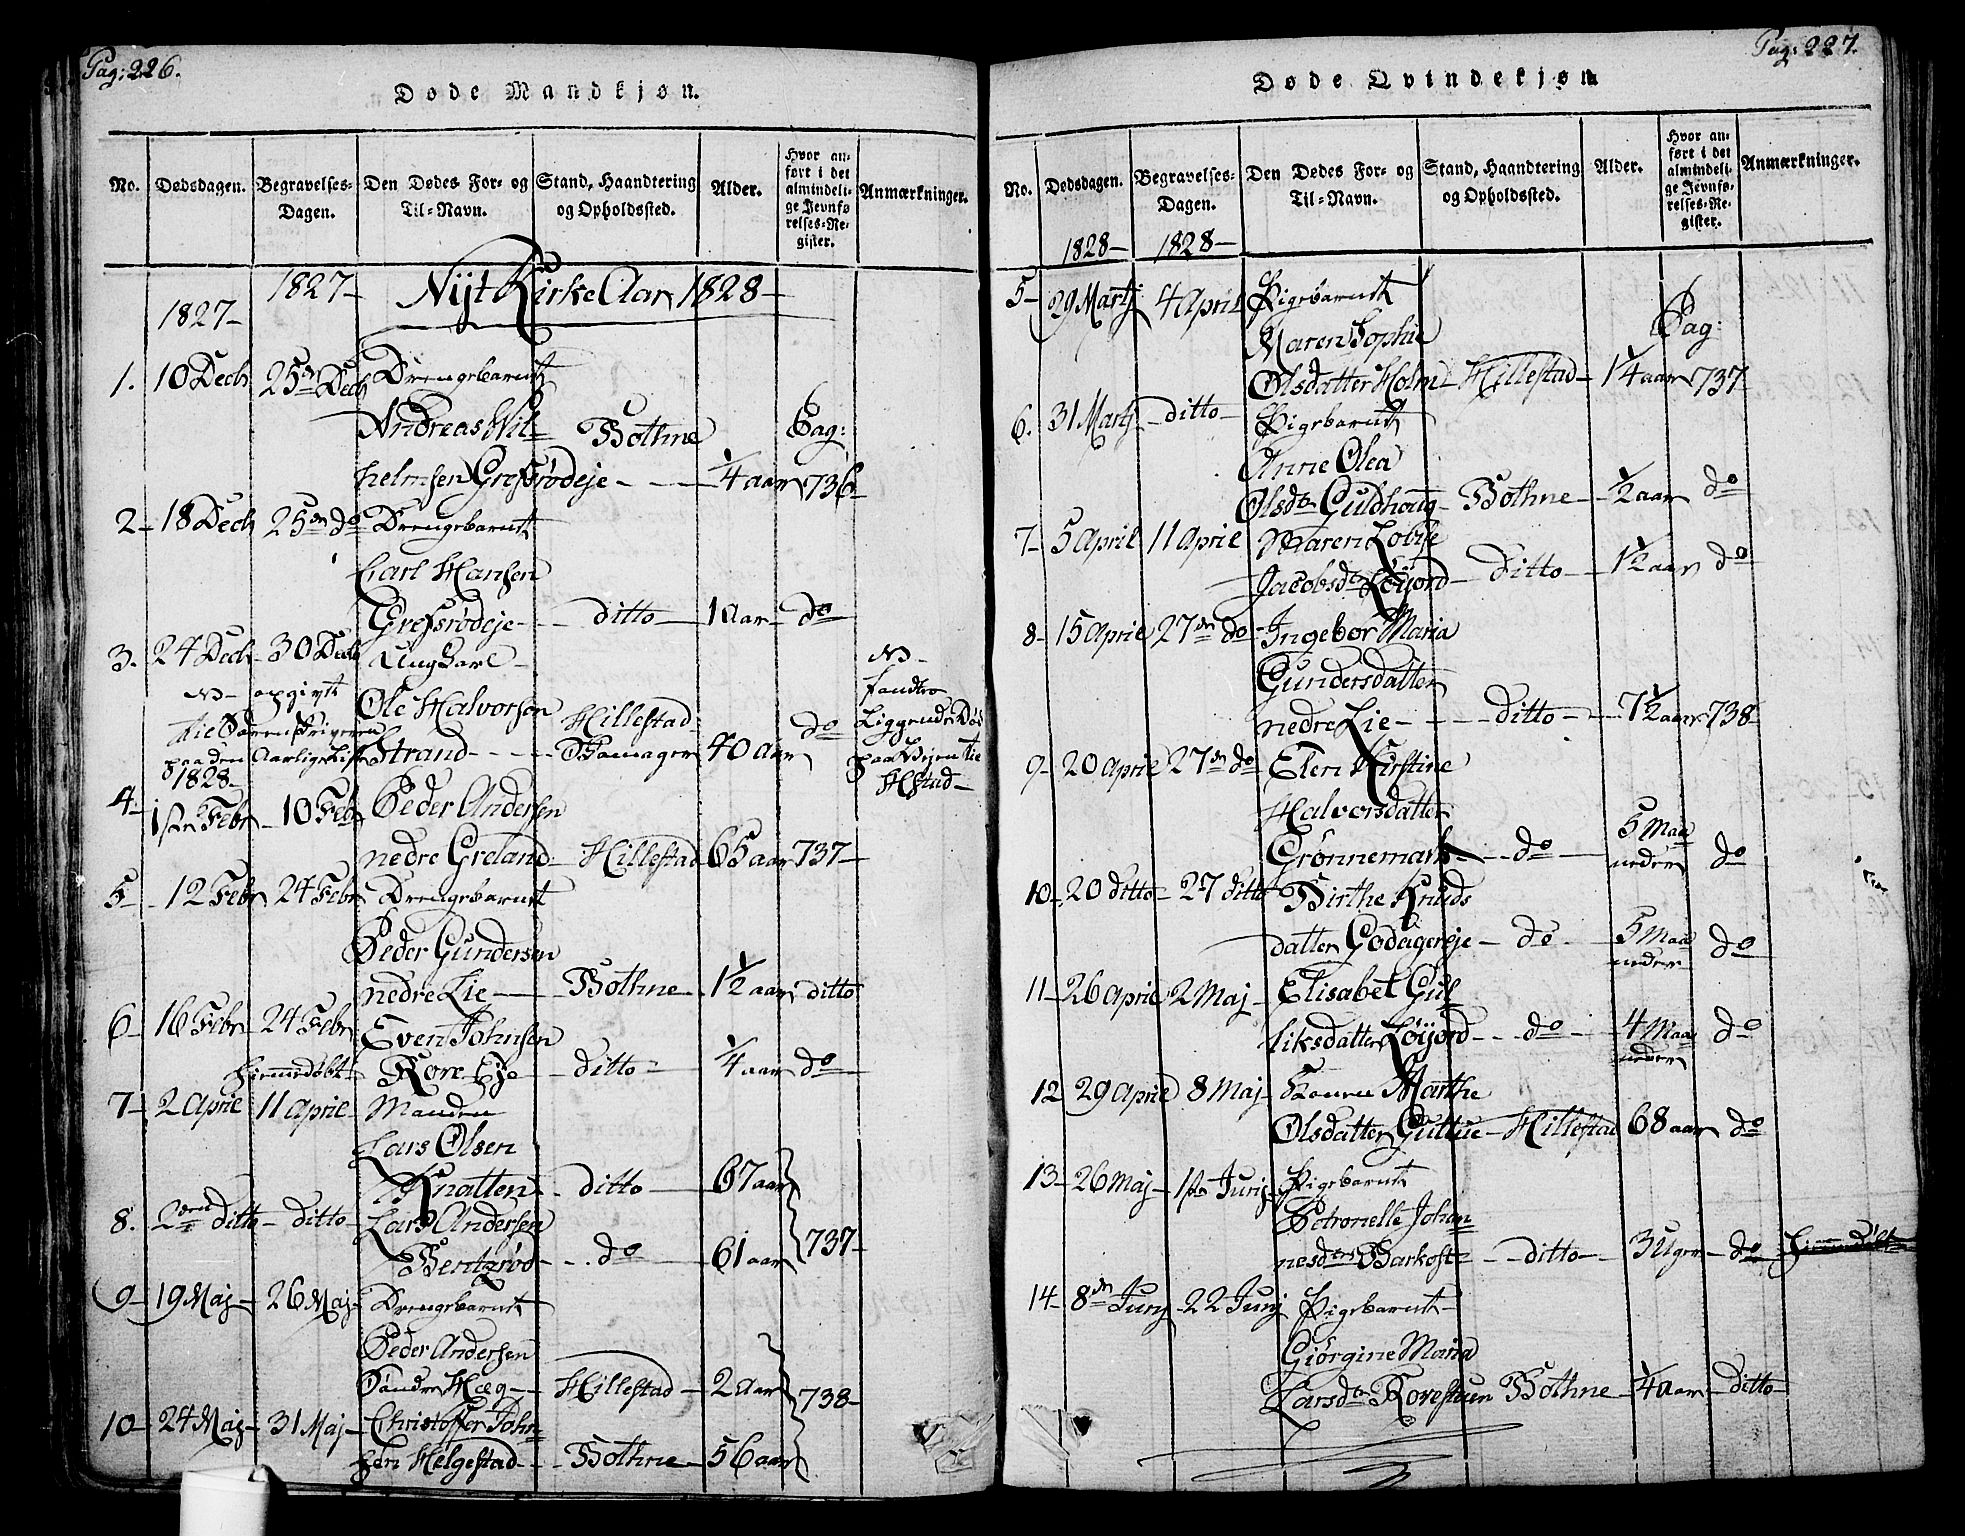 Pag: 226.
Døde Mandkjøn.
No. Dødsdagen. Begravelses-Dagen. Den Dødes For- og Til-Navn. Stand, Haandtering og Opholdssted. Alder. Hvor anført i det almindelige Jevnførelses-Register. Anmærkninger.
1827- 1827- Nÿt Kirke Aar 1828-
1. 10 Decb 25de Decb Drengebarnet
Andreas Wil- Bothne Pag:
helmsen Grefsrødeje - - - 1/4 aar 736-
2- 18 Decb 25de do Drengebarnet
Carl Hansen
Grefsrødeje- - ditto - 1 aar- do
3. 24 Decb- 30 Decb Ungkarl - NB-
NB- opgivet Ole Halvorsen Hillestad- do
Strand- - - - 40 aar Liggende Død
paa den Aarlige Liste paa Vejen
1828-
4- 1ste Febr- 10 Febr Peder Andersen
nedre Greland- Hillestad 65 aar 737-
5- 12 Febr 24 Febr Drengebarnet
Peder Gundersen
nedre Lie - Bothne- 1 1/2 aar ditto
6- 16 Febr- 24 Febr Even Johnsen
hiemmedøbt- Kore Eje ditto- 1/4 aar do
7- 2 April 11 April- Manden
Lars Olsen
Knatten- - ditto - 67 aar
8. 2den ditto - ditto- Lars Andersen
Bentsrød- - . do - 61 aar 737-
9- 19 Maj- 26 Maj- Drengebarnet
Peder Andersen
Søndre Hæg- - Hillestad- 2 Aar 738-
10- 24 Maj- 31 Maj- Christoffer John-
sen Helgestad- - Bothne- 56 aar
Pag: 227.
Døde Qvindekjøn
No. Dødsdagen. Begravelses-Dagen. Den Dødes For- og Til-Navn. Stand, Haandtering og Opholdssted. Alder. Hvor anført i det almindelige Jevnførelses-Register. Anmærkninger.
1828- 1828-
5- 29 Martj 4 April Pigebarnet
Maren Sophie Pag:
Olsdatter Holm- Hillestad- 1/4 aar 737-
6. 31 Martj- ditto- Pigebarnet
Anne Olea
Olsdtr Guldhoug- Bothne- 1/2 aar do
7- 5 April 11 April Maren Lovise
Jacobsdtr Løijord- ditto - 1 1/2 aar do
8- 15 April 27de do- Ingebor Maria
Gundersdatter
nedre Lie- - - - ditto - 7 1/2 aar 738-
9- 20 April 27de do- Elen Kirstine
Halvorsdatter
Grønnemark- - - do - 5 Maa- do
neder
10- 20 ditto- 27 ditto Birthe Knuds
datter Godagereje- do. - 5 Maa- do
neder
11- 26 April 2 Maj- Elisabet Gul-
liksdatter Løijord - - do - 4 Maa- do
neder
12 29 April 8 Maj- Konen Marthe
Olsdatter Guttue- Hillestad 68 aar- do
13- 26 Maj- 1ste Junj- Pigebarnet
Petronelle Johan
nesdtr Barkost- - ditto - 3 Uger- do hiemmedøbt
14- 8de Junj- 22 Junj Pigebarnet-
Giørgine Maria
Larsdtr Korestuen Bothne- 1/4 aar- ditto-